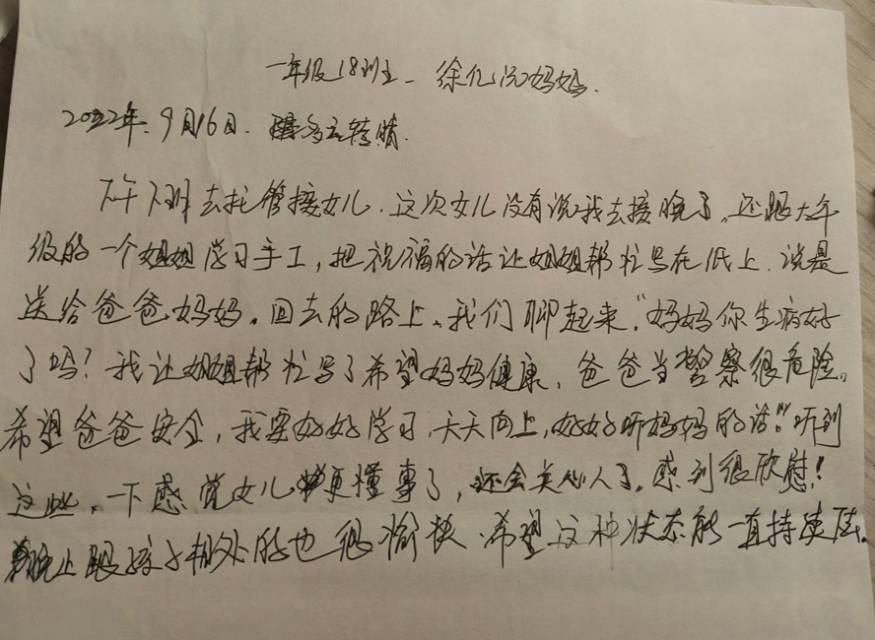 一年级18班 徐亿 妈妈.
2022年.9月16日. 多云转晴.
下午下班去托管接女儿.这次女儿没有说我去接晚了,还跟大年
级的一个姐姐学习手工,把祝福的话让姐姐帮忙写在纸上.说是
送给爸爸妈妈。回去的路上、我们聊起来,“妈妈你生病好
了吗?我让姐姐帮忙写了希望妈妈健康、爸爸当警察很危险。
希望爸爸安全,我要好好学习,天天向上,好好听妈妈的话。”听到
这些,一下感觉女儿更懂事了,还会关心人了。感到很欣慰!
晚上跟孩子相处的也很愉快.希望这种状态能一直持续